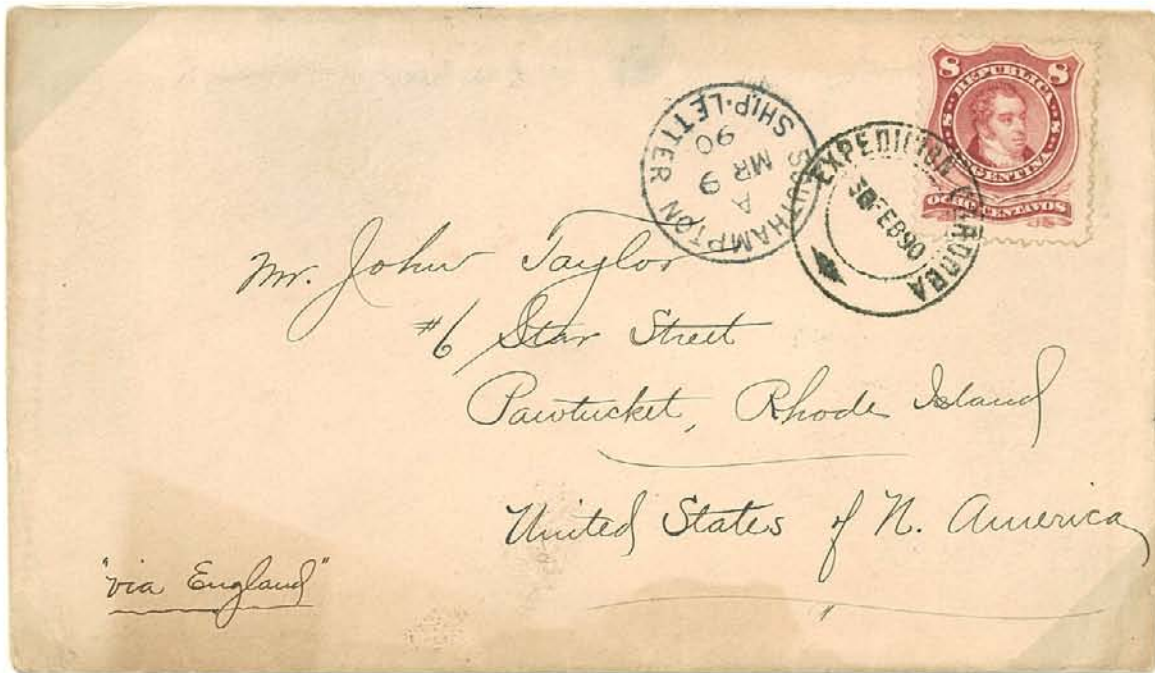 8 8
REPUBLICA
ARGENTINA
8 8
OCHO CENTAVOS
SOUTHAMPTON
SHIP-LETTER
A
MR 9
90
EXPEDICION CORDOBA
FEB 90
Mr. John Taylor
#6 Star Street
Pawtucket, Rhode Island
United States of N. America
"via England"